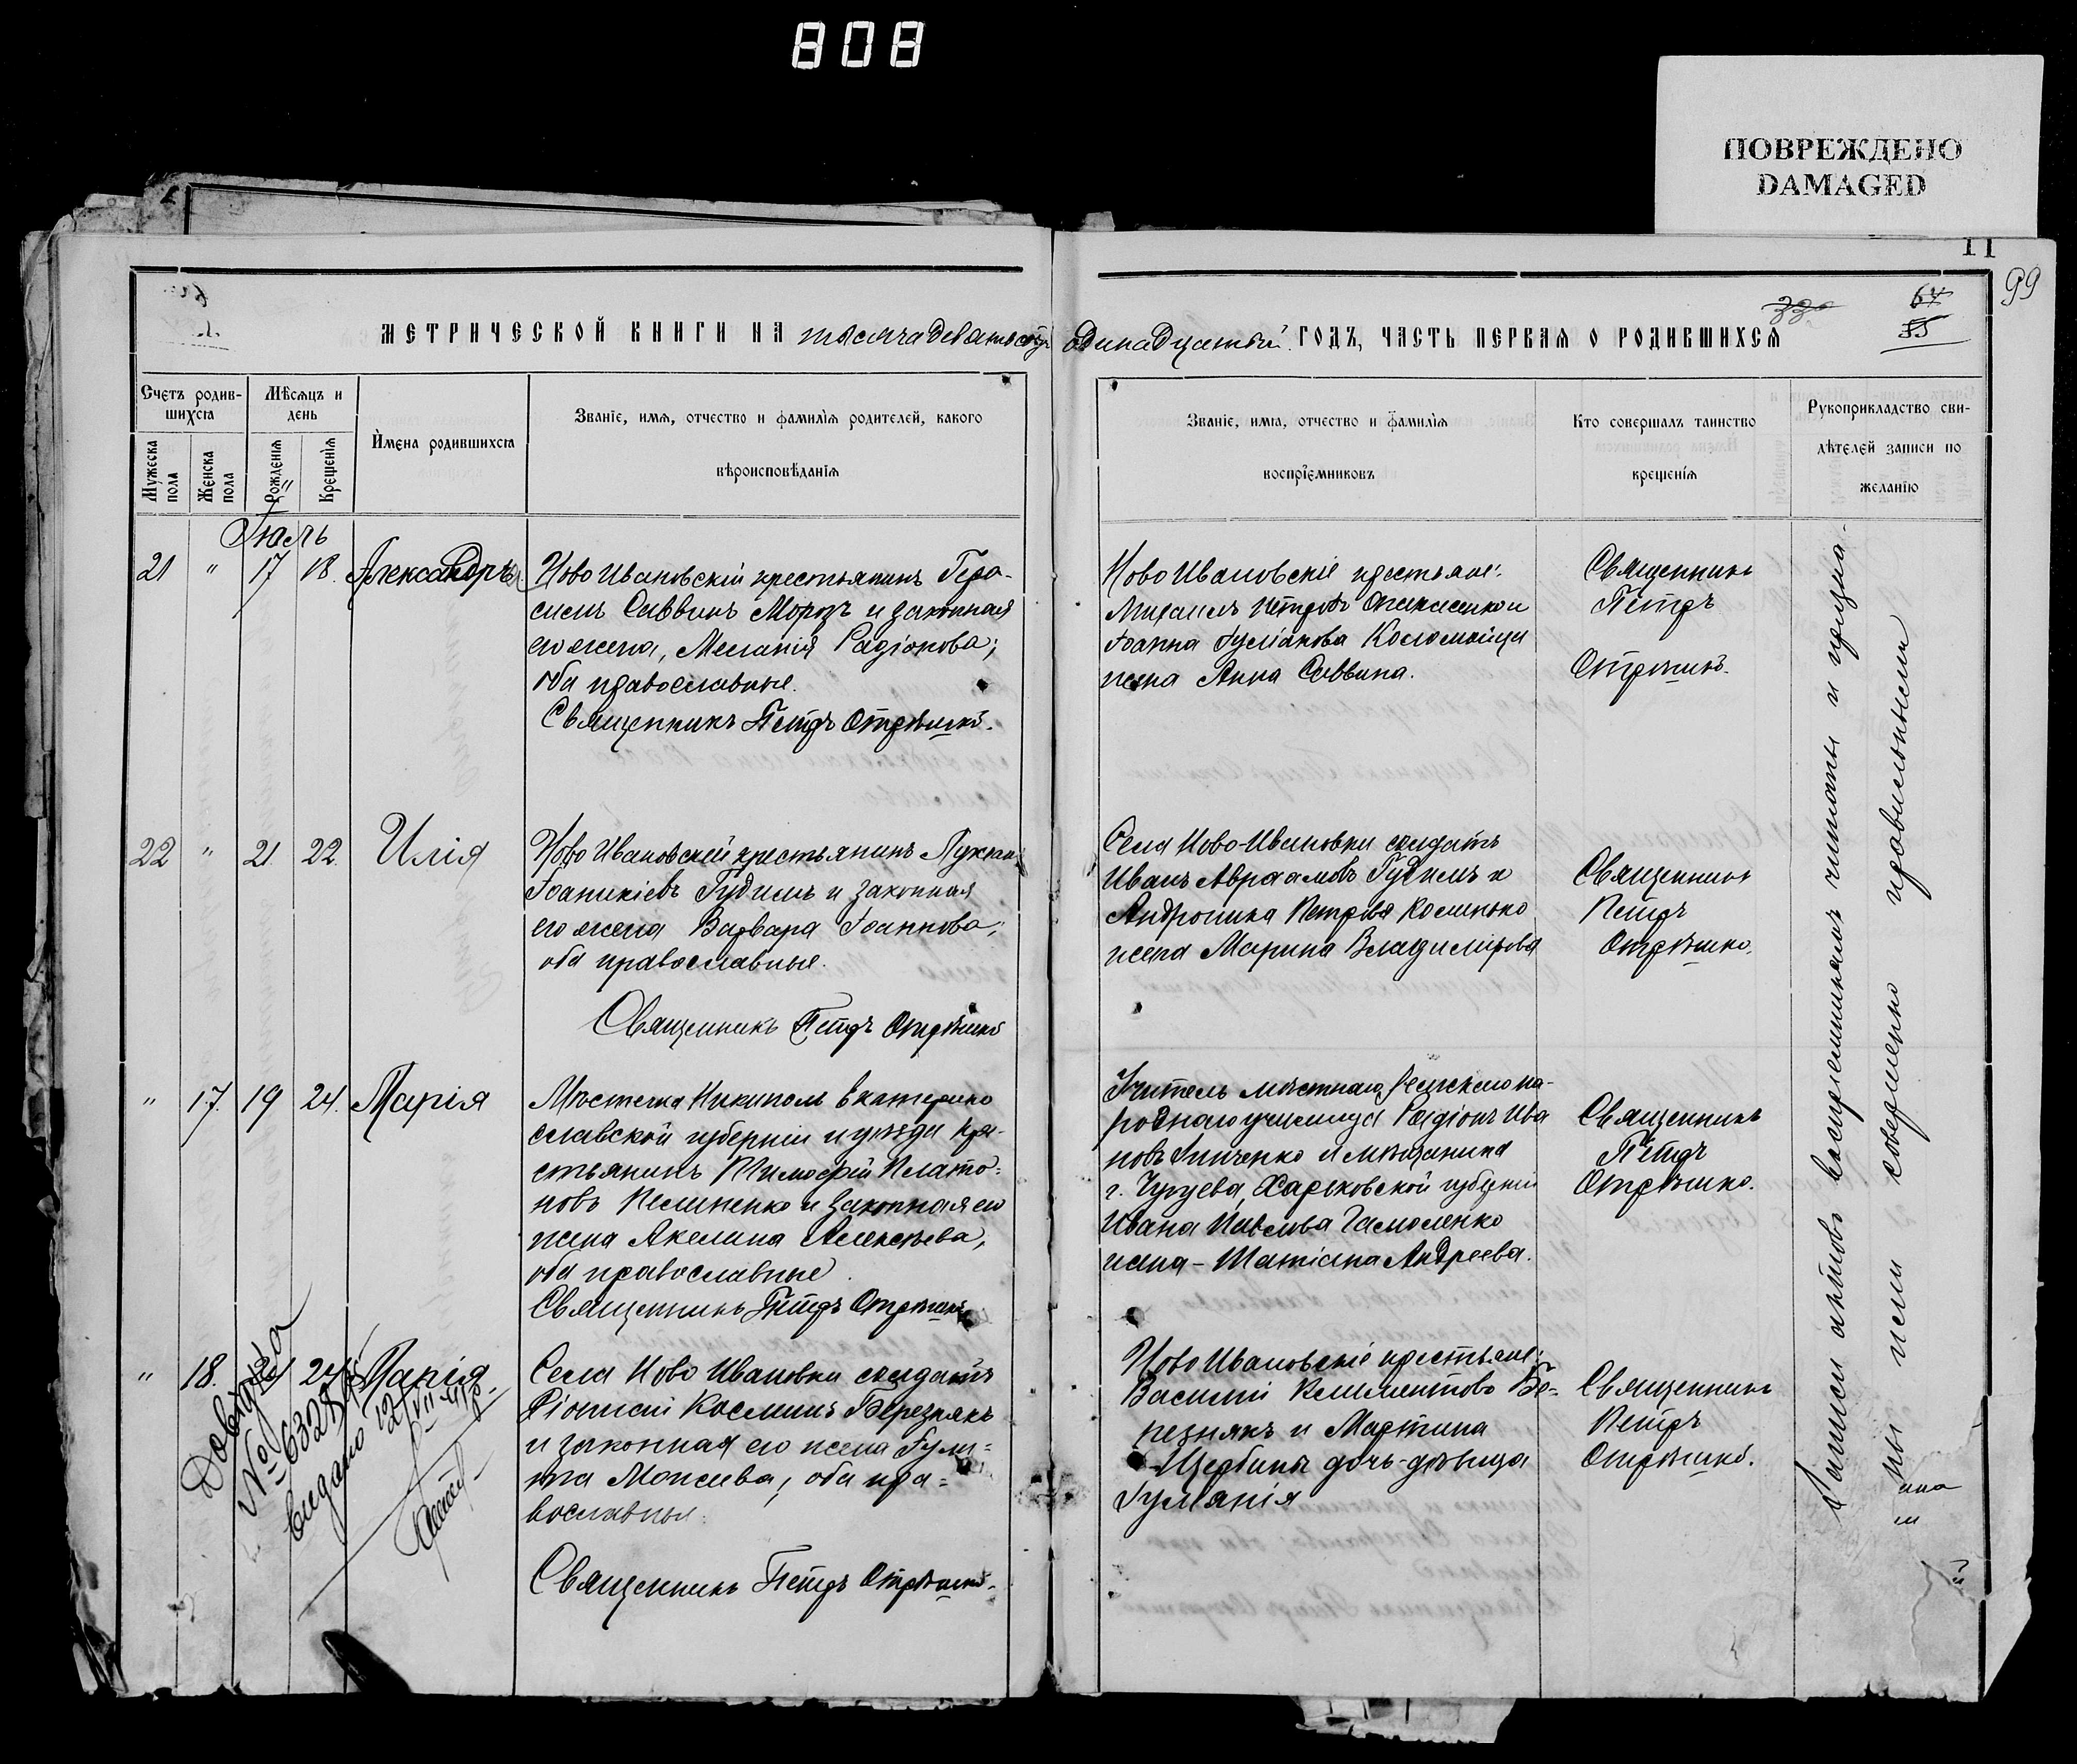 808
ПОВРЕЖДЕНО
DAMAGED
11
99
64
55
МЕТРИЧЕСКОЙ КНИГИ НА тысяча девятьсотъ одинадцатый ГОДЪ, ЧАСТЬ ПЕРВАЯ О РОДИВШИХСЯ
Счетъ родив-
шихся
Мужеска пола
Женска пола
Мѣсяцъ и
день
Рожденія
Крещенія
Имена родившихся
Званіе, имя, отчество и фамилія родителей, какого
вѣроисповѣданія
Званіе, имя, отчество и фамилія
воспріемниковъ
Кто совершалъ таинство
крещенія
Рукоприкладство сви-
дѣтелей записи по
желанію
Іюль
21 " 17 18. Александръ
Ново Ивановскій крестьянинъ Гера-
симъ Саввинъ Морозъ и законная
его жена, Меланія Радіонова;
оба православные.
Священникъ Петръ Отрѣшко.
Ново Ивановскіе крестьяне:
Михаилъ Петровъ и
Іоанна Іуліанова Коломойца
жена Анна Саввина.
Священникъ
Петръ
Отрѣшко.
22 " 21. 22. Илія
Ново Ивановскій крестьянинъ Лукіанъ
Іоаникіевъ Гудимъ и законная
его жена Варвара Іоаннова,
оба православные.
Священникъ Петръ Отрѣшко
Села Ново-Ивановки солдатъ
Иванъ Авраамовъ Гудимъ и
Андроника Петрова Косинько
жена Марина Владимірова
Священникъ
Петръ
Отрѣшко.
" 17. 19 24. Марія
Мѣстечка Никиполь Екатерино
славской губерніи и уѣзда кре-
стьянинъ Тимофей Плато-
новъ Пелипенко и законная его
жена Акелина Алексѣева,
оба православные.
Священникъ Петръ Отрѣшко
Учитель мѣстнаго Земскаго на-
роднаго училища Радіонъ Ива
новъ и мѣщанина
г. Чугуева, Харьковской губерніи
Ивана Павлова Гамоленко
жена - Татіана Андреева.
Священникъ
Петръ
Отрѣшко.
" 18. 21 24 Марія
Села Ново Ивановки солдатъ
Діонисій Косминъ Березнякъ
и законная его жена Іули-
та Моисеева, оба пра-
вославные.
Священникъ Петръ Отрѣшко.
Ново Ивановскіе крестьяне:
Василій Климентовъ Бе-
резнякъ и Мартина
Щербины дочь-дѣвица
Іуліанія
Священникъ
Петръ
Отрѣшко.
Довідка
№ 6328
видано 12/VII
Записи актовъ воспріемникамъ читаны и призна-
ны ими совершенно правильными